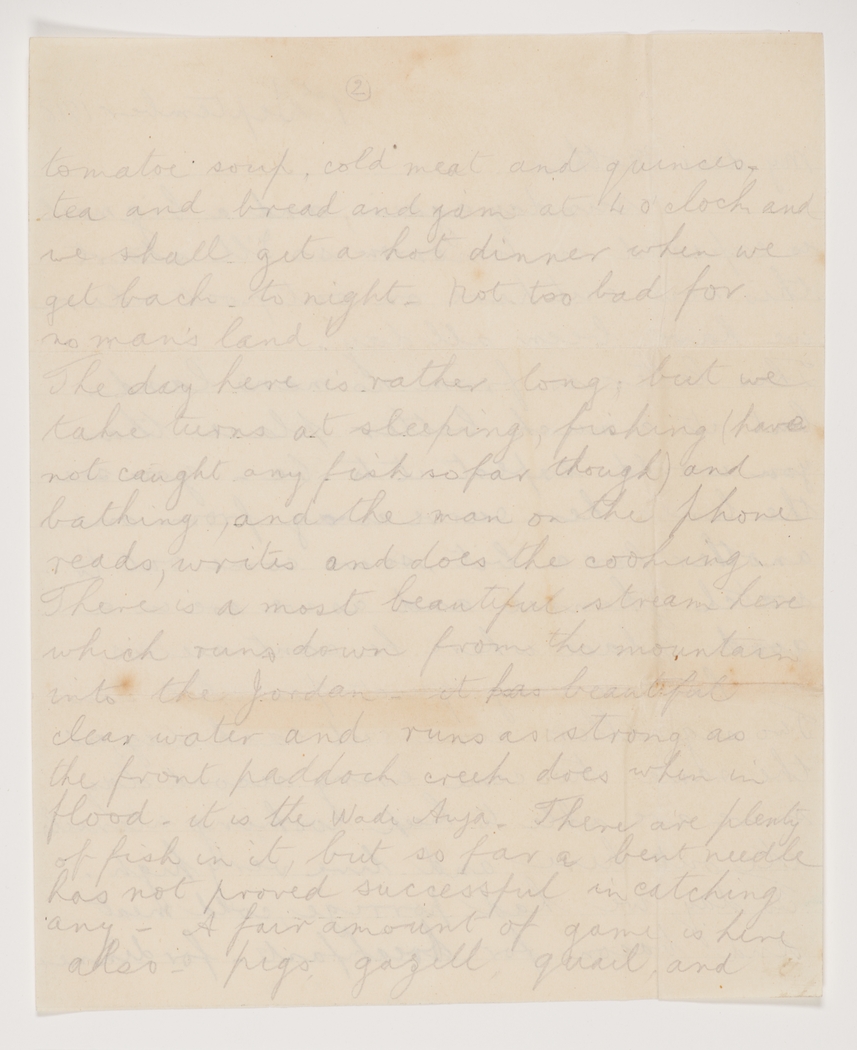 (2)
tomatoe soup, cold meat and quinces.
tea and bread and yam at 4 o'clock and
we shall get a hot dinner when we
get back to night - Not too bad for
no man's land!
The day here is rather long; but we
take turns at sleeping, fishing (have
not caught any fish so far though) and
bathing, and the man on the phone
reads, writes and does the cooking.
There is a most beautiful stream here
which runs down from the mountain
into the Jordan - it has beautiful
clear water and runs as strong as
the front paddock creek does when in
flood - it is the Wadi Auja. There are plenty
of fish in it, but so far a bent needle
has not proved successful in catching
any - A fair amount of game is here
also - pigs, gazell, quail, and